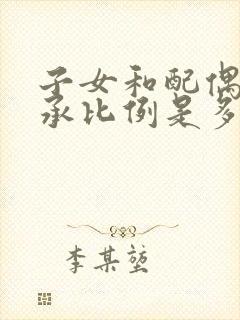 子女和配偶
承比例是多
李某堃